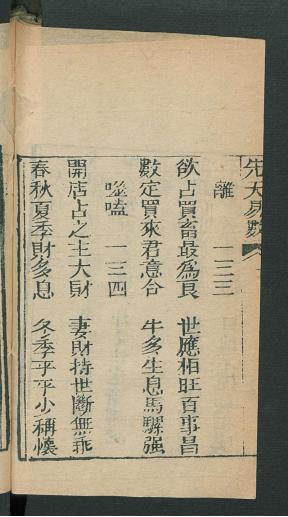 先天易數
離 一三三
欲占買畜最爲良 世應相旺百事昌
數定買來君意合 牛多生息馬騾强
噬嗑 一三四
開店占之主大財 妻財持世斷無乖
春秋夏季財多息 冬季平平少稱懷